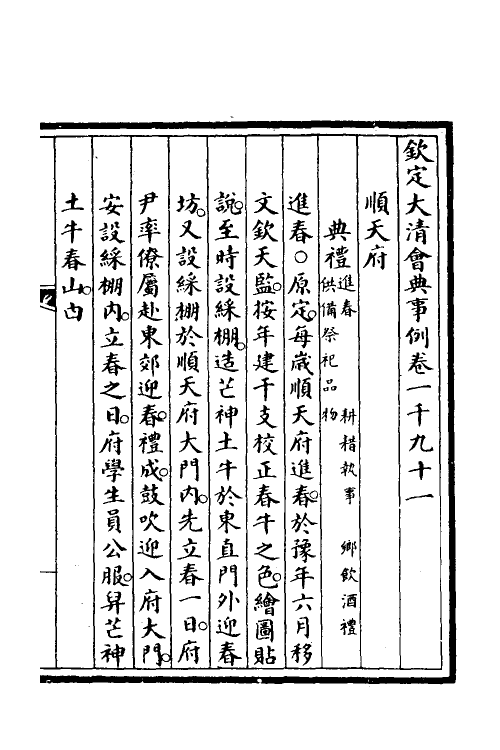 欽定大清會典事例卷一千九十一
順天府
典禮進春 耕耤執事 鄉飲酒禮
供備祭祀品物
進春○原定。每歲順天府進春。於豫年六月移
文欽天監。按年建干支校正春牛之色。繪圖貼
說。至時設綵棚。造芒神土牛於東直門外迎春
坊。又設綵棚於順天府大門內。先立春一日。府
尹率僚屬赴東郊迎春。禮成。鼓吹迎入府大門。
安設綵棚內。立春之日。府學生員公服。舁芒神
土牛春山。由